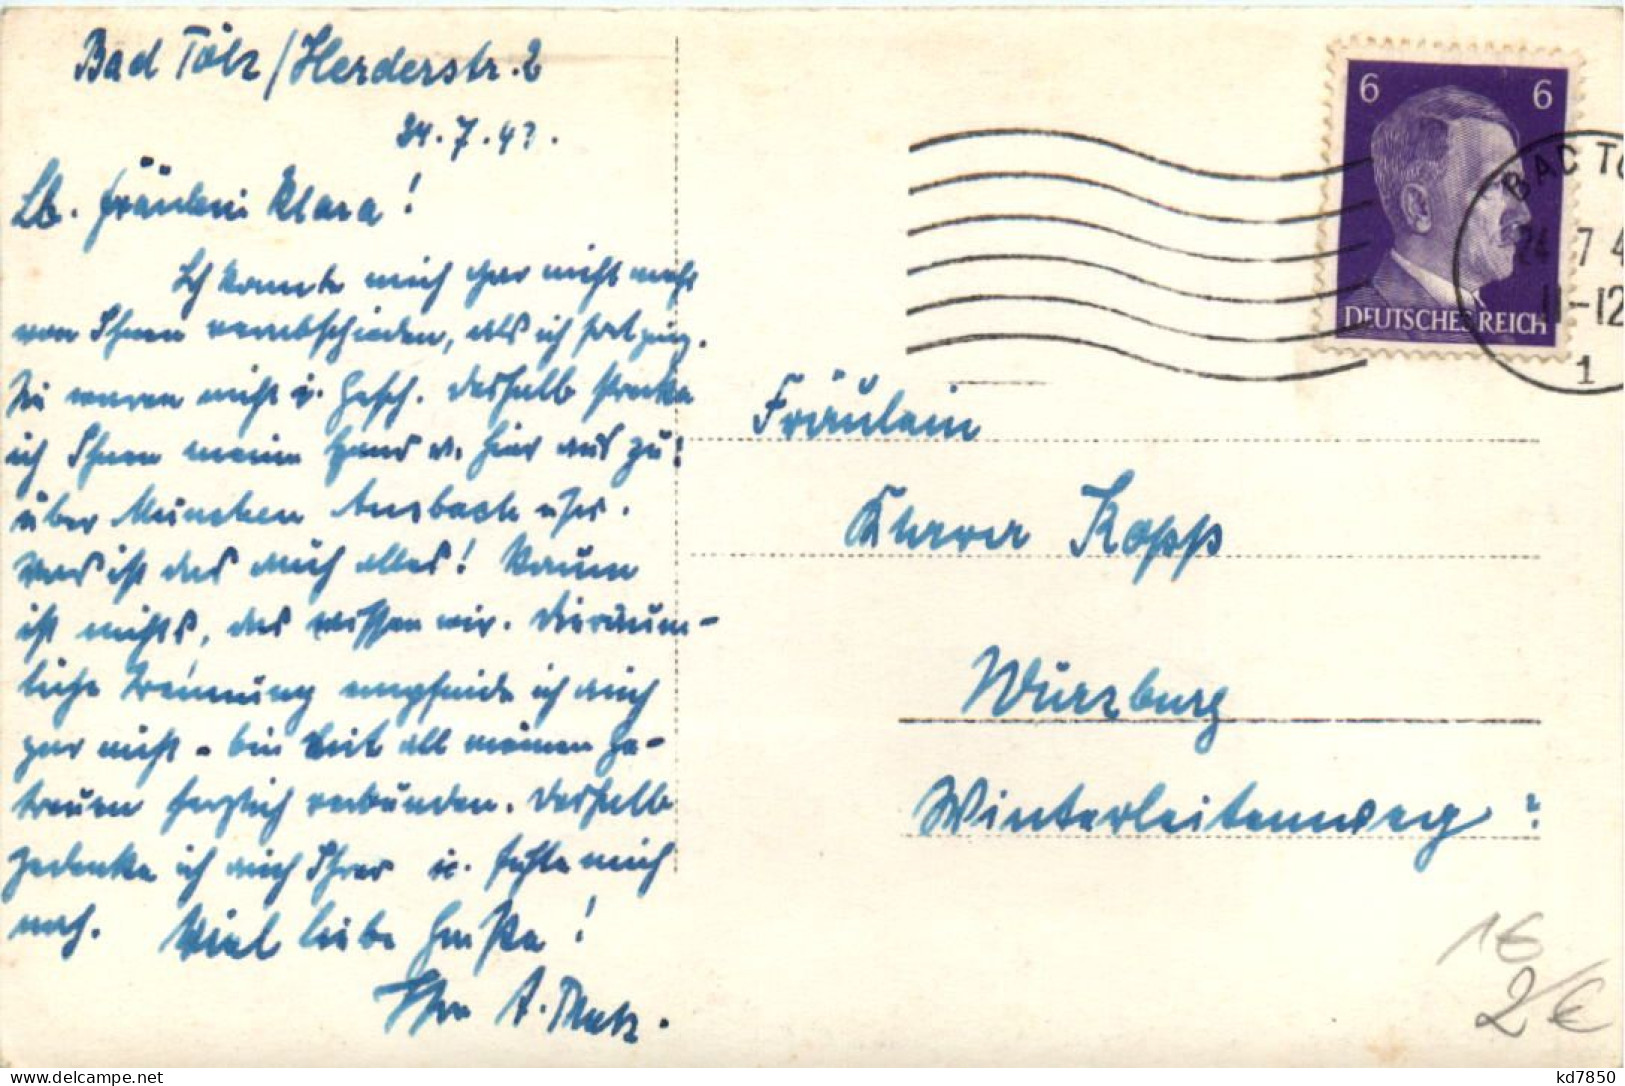 Bad Tölz / Herderstr. 2
24.7.43.
Lb. Fräulein Klara!
Ich konnte mich gar nicht mehr
von Ihnen verabschieden, als ich fortging.
Sie waren nicht i. Gesch. Deshalb strecke
ich Ihnen meine Hand v. hier aus zu:
über München Ansbach usw.
Was ist das auch alles! Raum
ist nichts, das wissen wir. Die räum-
liche Trennung empfinde ich auch
gar nicht - bin mit all meinen Ge-
treuen herzlich verbunden. Deshalb
gedenke ich auch Ihrer u. sehne mich
nach. Viel liebe Grüße!
Ihr A.
Fräulein
Klara Kopp
Würzburg
Winterleitenweg ?
6 6
DEUTSCHES REICH
BAD TÖ
24 7 4
11-12
1
1€
2€
kd7850